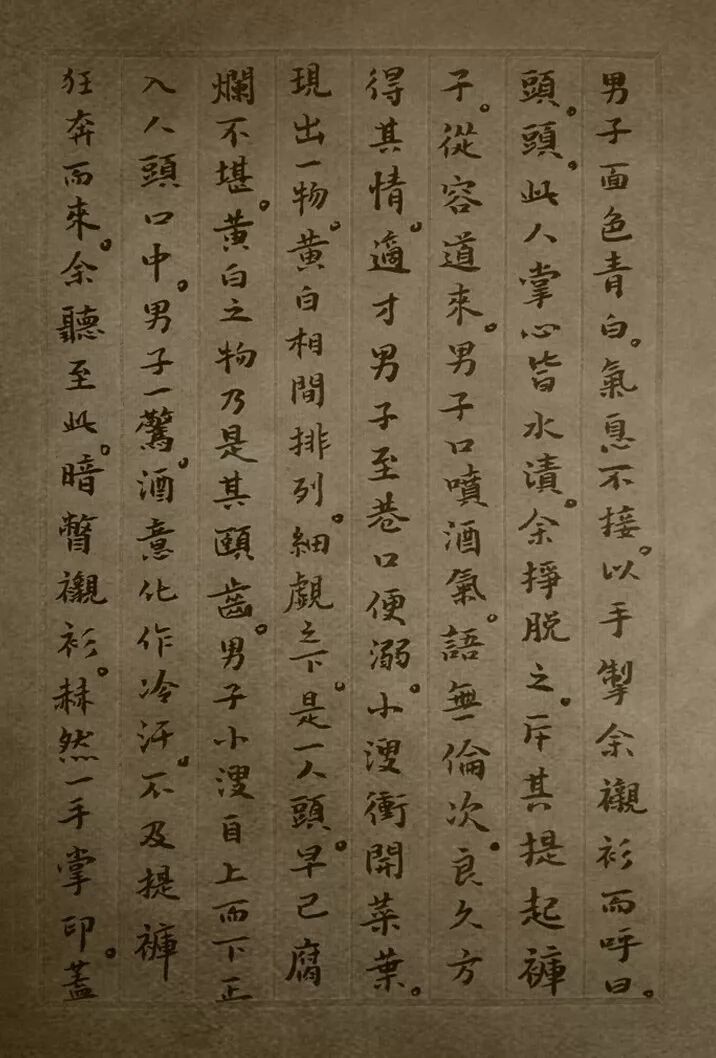 男子面色青白。氣息不接。以手掣余襯衫而呼曰。
頭。頭。此人掌心皆水漬。余掙脫之。斥其提起褲
子。從容道來。男子口噴酒氣。語無倫次。良久方
得其情。適才男子至巷口便溺。小溲衝開菜葉。
現出一物。黃白相間排列。細覷之下。是一人頭。早已腐
爛不堪。黃白之物乃是其頤齒。男子小溲自上而下正
入人頭口中。男子一驚。酒意化作冷汗。不及提褲
狂奔而來。余聽至此。暗瞥襯衫。赫然一手掌印。蓋